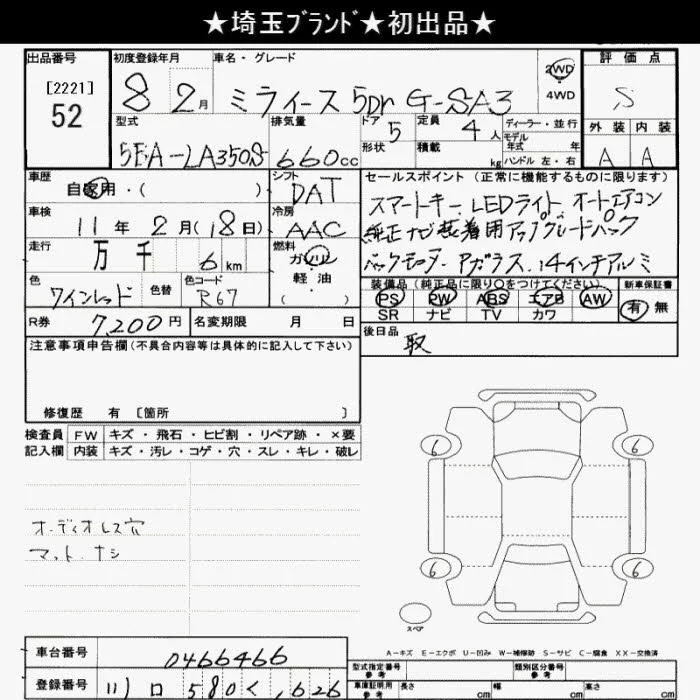 ★埼玉ﾌﾞﾗﾝﾄﾞ★初出品★
出品番号
[2221]
52
初度登録年月
8 2月
車名・グレード
ミライース 5Dr G-SA3
2WD
4WD
評価点
S
外装 内装
A A
型式
5BA-LA350S
排気量
660cc
ドア 5
形状
定員 4人
積載 kg
ディーラー・並行
モデル
年式 年
ハンドル 左・右
車歴
自家用・( )
シフト
DAT
車検
11年2月(18日)
冷房
AAC
走行
万 千 6km
燃料
ガソリン
軽油
( )
色
ワインレッド
色替
色コード
R67
R券
7,200円
名変期限 月 日
セールスポイント(正常に機能するものに限ります)
スマートキー LEDライト オートエアコン
純正ナビ装着用アップグレードパック
バックモニター Aガラス 14インチアルミ
装備品(純正品に限り○をつけてください)
PS PW ABS エアB AW
SR ナビ TV カワ
新車保証書
有 無
後日品
取
注意事項申告欄(不具合内容等は具体的に記入して下さい)
修復歴 有 [箇所 ]
検査員
記入欄
FW キズ・飛石・ヒビ割・リペア跡・×要
内装 キズ・汚レ・コゲ・穴・スレ・キレ・破レ
オーディオレス穴
マット ナシ
6 6
6 6
スペア
A−キズ E−エクボ U−凹み W−補修跡 S−サビ C−腐食 XX−交換済
車台番号
0466466
登録番号
川口 580 く ,626
型式指定番号
参考
類別区分番号
参考
車庫証明用
参考
長さ cm
幅 cm
高さ cm